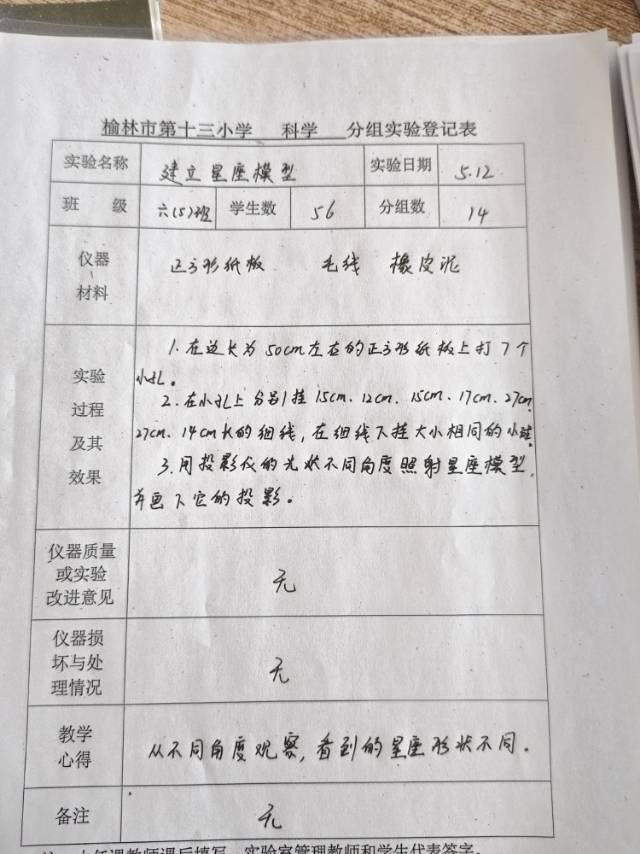 榆林市第十三小学 科学 分组实验登记表
实验名称 建立星座模型 实验日期 5.12
班 级 六(5)班 学生数 56 分组数 14
仪器
材料
正方形纸板 毛线 橡皮泥
实验
过程
及其
效果
1.在边长为50cm左右的正方形纸板上打7个
小孔。
2.在小孔上分别挂15cm、12cm、15cm、17cm、27cm、
27cm、14cm长的细线,在细线下挂大小相同的小球
3.用投影仪的光状不同角度照射星座模型,
并画下它的投影。
仪器质量
或实验
改进意见
无
仪器损
坏与处
理情况
无
教学
心得
从不同角度观察,看到的星座形状不同。
备注 无
任课教师课后填写,实验室管理教师和学生代表签字。